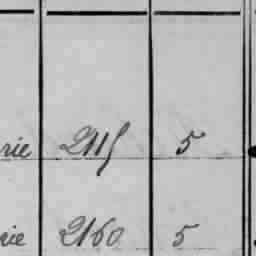 rie 2115 5
rie 2160 5